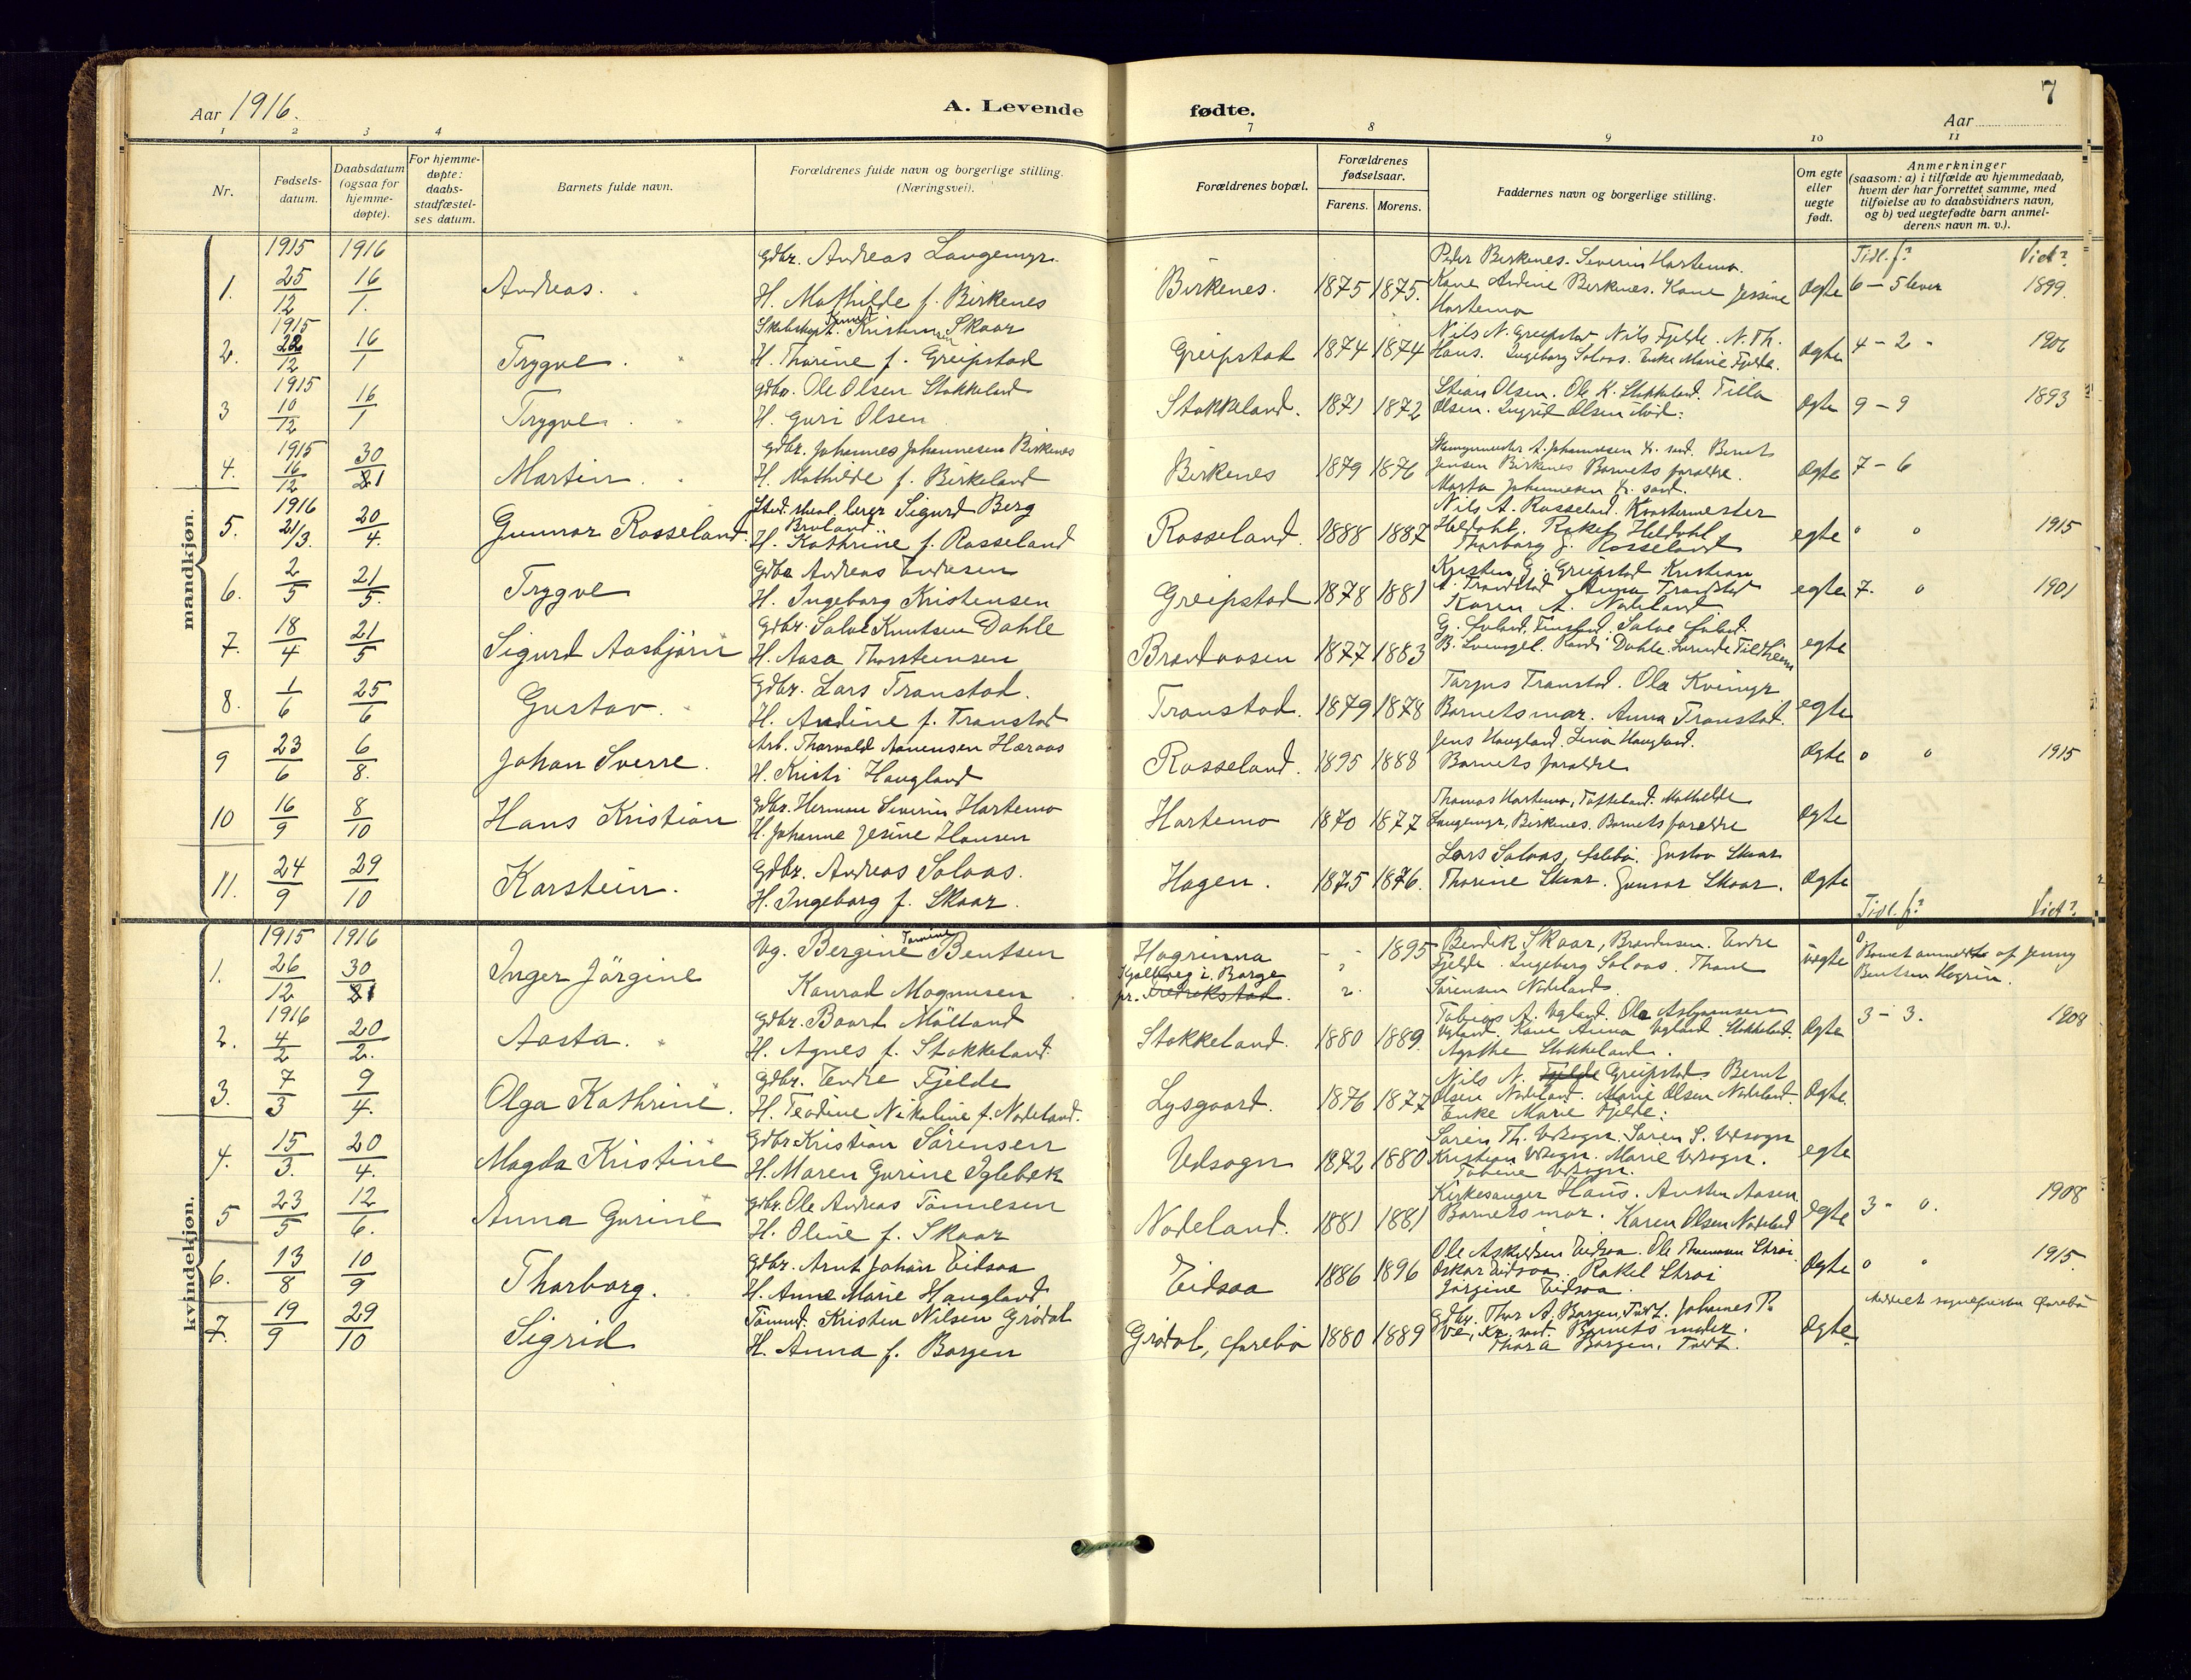 Aar 1916.
A. Levende fødte.
7
Aar
1 2 3 4 7 8 9 10 11
Nr.
Fødsels-
datum.
Daabsdatum
(ogsaa for
hjemme-
døpte).
For hjemme-
døpte:
daabs-
stadfæstel-
ses datum.
Barnets fulde navn.
Forældrenes fulde navn og borgerlige stilling.
(Næringsvei).
Forældrenes bopæl.
Forældrenes
fødselsaar.
Farens. Morens.
Faddernes navn og borgerlige stilling.
Om egte
eller
uegte
født.
Anmerkninger
(saasom: a) i tilfælde av hjemmedaab,
hvem der har forrettet samme, med
tilføielse av to daabsvidners navn,
og b) ved uegtefødte barn anmel-
derens navn m. v.).
mandkjøn.
1915 1916
Tidl. f? Viet?
1. 25/12 16/1. Andreas.
Gdbr. Andreas Langemyr.
H. Mathilde f. Birkenes
Birkenes. 1875 1875.
Peder Birkenes. Severin Hartemo.
Kone Andine Birkenes. Kone Jessine
Hartemo
Ægte 6 – 5 lever 1899.
1915
2. 22/12 16/1 Trygve.
Kristian Skaar
H. Thorine f. Greipstad
Greipstad 1874 1874
Nils N. Greipstad Nils Fjelde. N. Th.
Haus. Ingeborg Solaas. Enke Marie Fjelde.
Ægte 4 – 2 1906
1915
3 10/12 16/1 Trygve.
Gdbr. Ole Olsen Stokkeland
H. Guri Olsen
Stokkeland. 1871 1872
Stian Olsen. Ole K. Stokkeland. Tilla
Olsen. Ingrid Olsen
Ægte 9 – 9 1893
1915
4. 16/12 30/1 Martin.
Gdbr. Johannes Johannesen Birkenes
H. Mathilde f. Birkeland
Birkenes 1879 1876
A. Johannesen Kr. sand. Bernt
Jensen Birkenes Barnets forældre.
Marta Johannesen Kr. sand.
Ægte 7 – 6
1916
5. 21/3. 20/4. Gunnar Rosseland.
Sigurd Berg
Broland
H. Kathrine f. Rosseland
Rosseland. 1888 1887
Nils A. Rosseland. Kvartermester
Heldahl. Rakel Heldahl.
Thorborg J. Rosseland
egte 0 0 1915
6. 2/5 21/5. Trygve
Gdbr Andreas Endresen
H. Ingeborg Kristensen
Greipstad 1878 1881
Kristen G. Greipstad Kristian
A. Tranestad Anna Tranestad
Karen A. Nodeland
egte 7. 0 1901
7. 18/4 21/5 Sigurd Aasbjørn
Gdbr. Salve Knutsen Dahle
H. Aasa Thorsteinsen
Brandaasen 1877 1883
Salve
B. Randi Dahle.
egte
8. 1/6 25/6 Gustav.
Gdbr. Lars Tranestad.
H. Andine f. Tranestad
Tronstad. 1879 1878
Tarjus Tranestad. Ola Kvimyr
Barnets mor. Anna Tranestad.
egte
9 23/6 6/8. Johan Sverre.
Arb. Thorvald Aanensen Høraas
H. Kristi Haugland
Rosseland. 1895 1888
Jens Haugland. Lina Haugland.
Barnets forældre
Ægte 0 0 1915
10 16/9 8/10 Hans Kristian
Gdbr. Herman Severin Hartemo
H. Johanne Jesine Hansen
Hartemo 1870 1877
Thomas Hartemo, Tofteland. Mathilde
Langemyr, Birkenes. Barnets forældre
Ægte
11. 24/9 29/10 Karstein.
Gdbr. Andreas Solaas.
H. Ingeborg f. Skaar.
Hagen. 1875 1876.
Lars Solaas, Gustav Skaar
Thorine Skaar. Gunvor Skaar.
Ægte
kvindekjøn.
1915 1916
Tidl. f? Viet?
1. 26/12 30/1 Inger Jörgine
Ug. Bergine Bentsen
Konrad Magnusen
Hogrinna
i Borge
pr. Fredrikstad.
1895
Bendik Skaar, Brandaasen. Endre
Fjelde. Ingeborg Solaas. Thone
Sørensen Nodeland
uegte 0
Barnet anmeldt af Jenny
Bentsen Hogrin.
1916
2. 4/2 20/2. Aasta.
Gdbr. Baard Mölland
H. Agnes f. Stokkeland.
Stokkeland. 1880 1889.
Tobias A. Ugland. Ola Asbjørnsen
Ugland. Kone Anna Ugland. Stokkeland.
Agathe Stokkeland.
Ægte 3 – 3. 1908
3. 7/3 9/4. Olga Kathrine.
Gdbr. Endre Fjelde
H. Teodine Nikoline f. Nodeland.
Lysgaard. 1876 1877
Nils N. Fjelde Greipstad. Bernt
Olsen Nodeland. Marie Olsen Nodeland.
Enke Marie Fjelde.
Ægte.
4. 15/3. 20/4. Magda Kristine
Gdbr Kristian Sørensen
H. Maren Gurine Iglebæk
Udsogn 1872 1880
Søren Th. Udsogn. Søren S. Udsogn
Kristian Udsogn. Marie Udsogn.
Tobine Udsogn.
egte
5 23/5 12/6. Anna Gurine
Gdbr. Ole Andreas Tønnesen
H. Oline f. Skaar
Nodeland. 1881 1881
Kirkesanger Haus. Austen Aasen.
Barnets mor. Karen Olsen Nodeland
Ægte 3 – 0. 1908
6. 13/8 10/9 Thorborg.
Gdbr. Arnt Johan Eidsaa
H. Anne Marie Haugland
Eidsaa 1886 1896
Ole Askildsen Eidsaa. Ole Strai
Oskar Eidsaa. Rakel Strai
Jörgine Eidsaa.
Ægte 0 1915.
7. 19/9 29/10 Sigrid
Tömmd. Kristen Nilsen Grødal
H. Anna f. Borgen
Grødal, 1880 1889
Gdbr. Thor A. Borgen, Tvet. Johannes P.
Ve, Kr. sand. Barnets moder.
Thora Borgen. Tvet.
Ægte